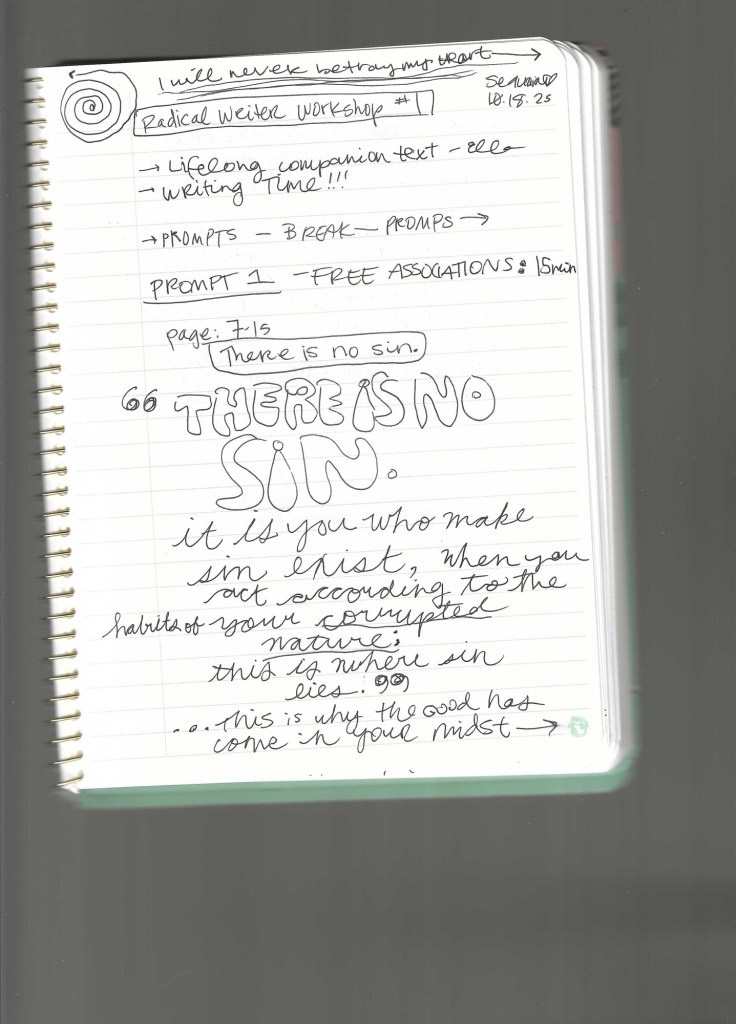 I will never betray my heart →
10.18.25
Radical Writer Workshop #1
→ Lifelong companion text -
→ Writing Time!!!
→ PROMPTS — BREAK — PROMPS →
PROMPT 1 - FREE ASSOCIATIONS: 15min
page: 7-15
There is no sin.
“THERE IS NO
SIN.
it is you who make
sin exist, when you
act according to the
habits of your corrupted
nature;
this is where sin
lies.”
...this is why the Good has
come in your midst →